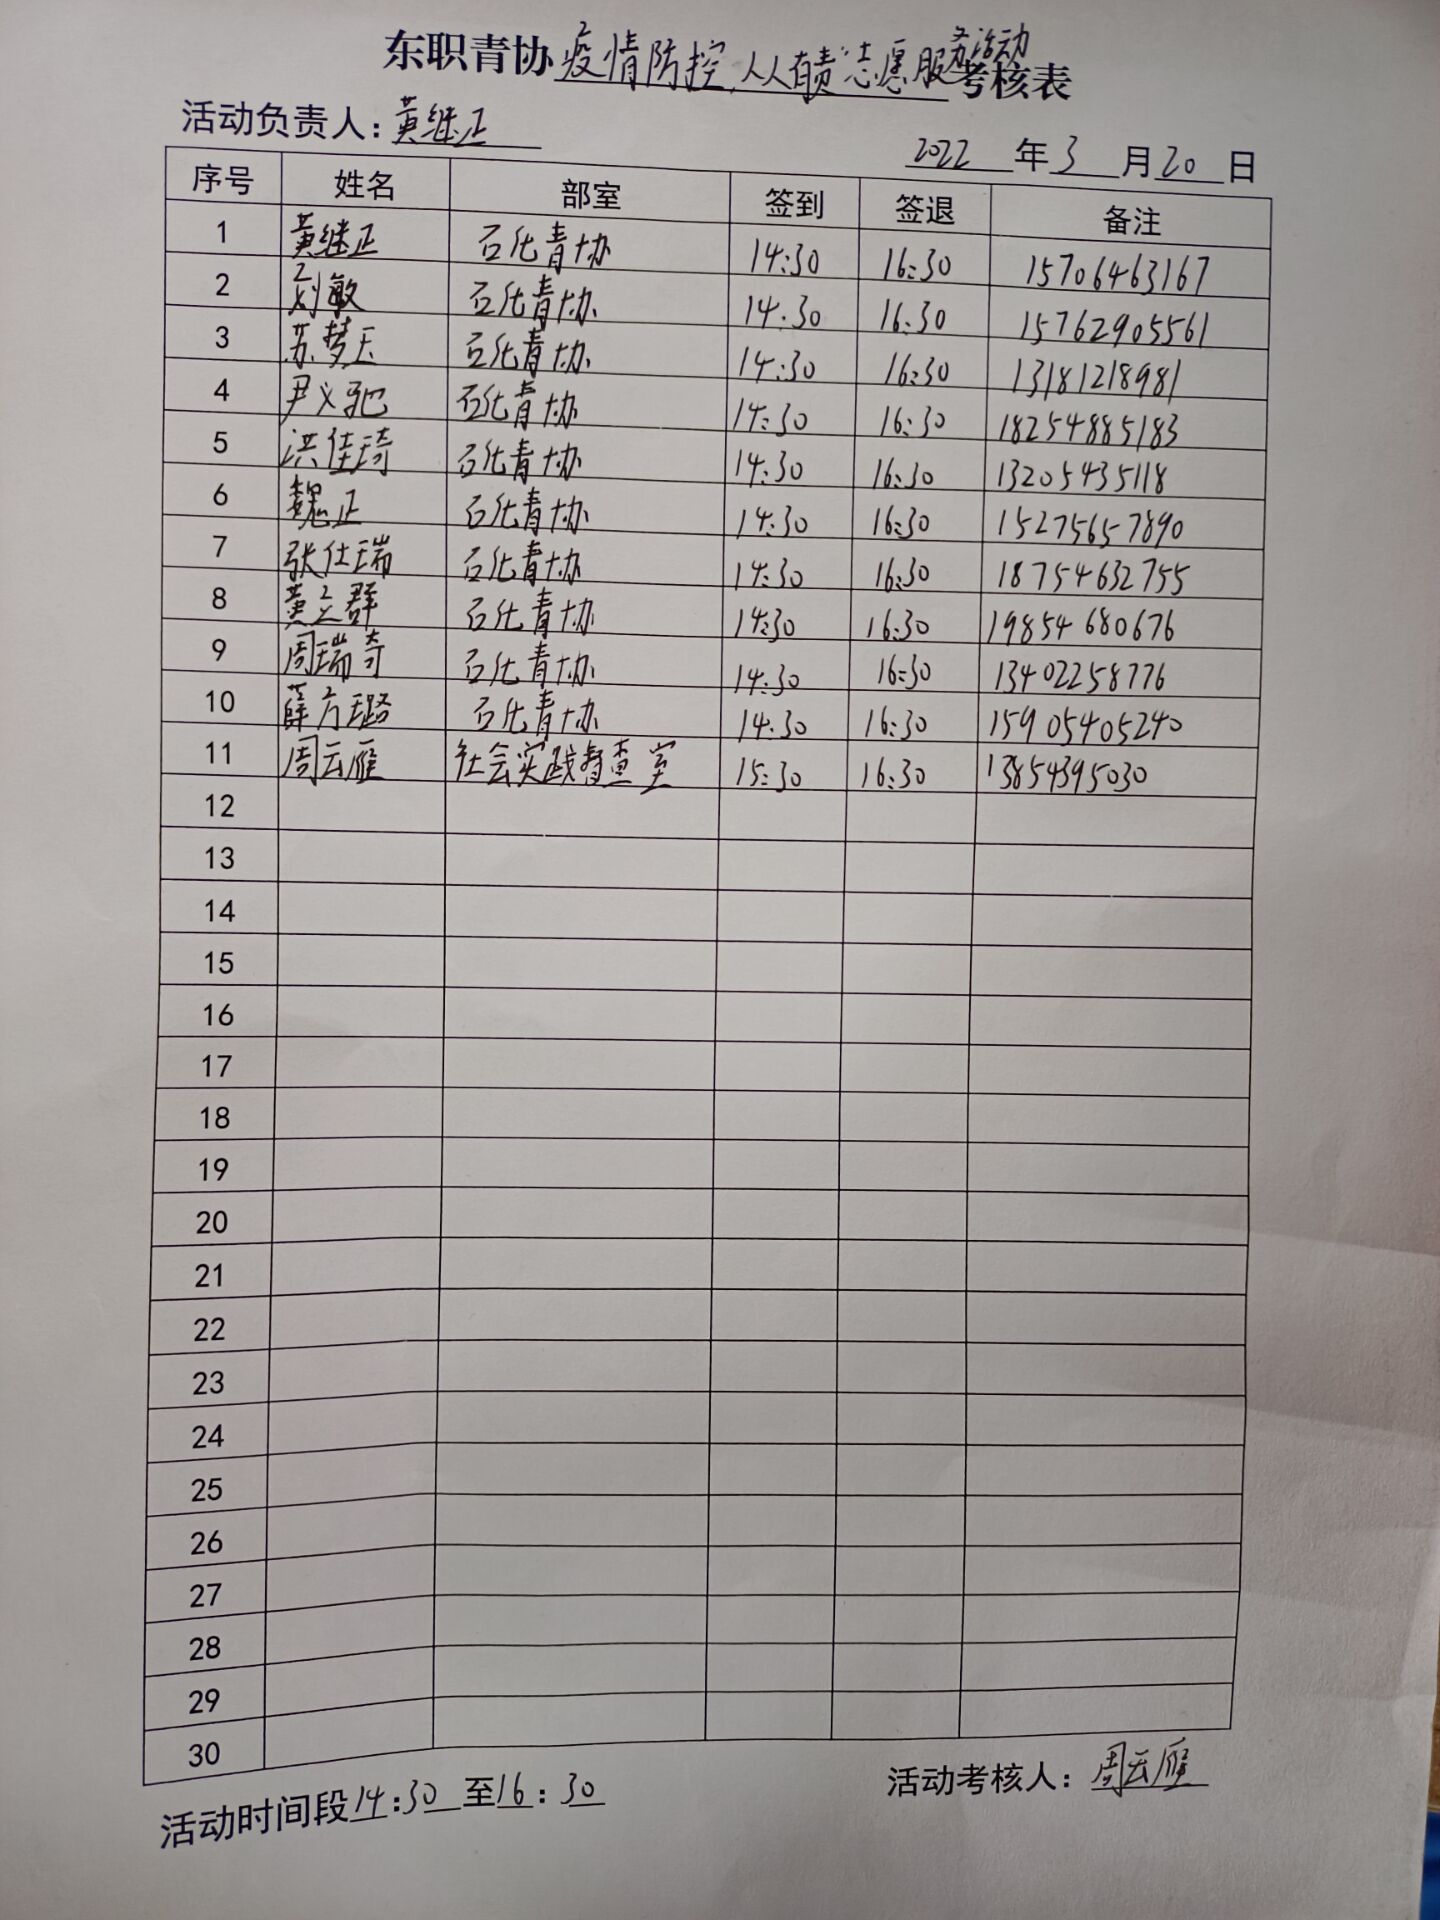 东职青协疫情防控,人人有责"志愿服务活动考核表
活动负责人:黄继正
2022年3月20日
序号 姓名 部室 签到 签退 备注
1 黄继正 石化青协 14:30 16:30 15706463167
2 刘敏 石化青协 14:30 16:30 15762905561
3 苏梦玉 石化青协 14:30 16:30 13181218981
4 尹义驰 石化青协 14:30 16:30 18254885183
5 洪佳琦 石化青协 14:30 16:30 13205435118
6 魏正 石化青协 14:30 16:30 15275657890
7 张仕瑞 石化青协 14:30 16:30 18754632755
8 黄之群 石化青协 14:30 16:30 19854680676
9 周瑞奇 石化青协 14:30 16:30 13402258776
10 薛方璐 石化青协 14:30 16:30 15905405240
11 周云雁 社会实践督查室 15:30 16:30 13854395030
12
13
14
15
16
17
18
19
20
21
22
23
24
25
26
27
28
29
30
活动时间段14:30至16:30
活动考核人:周云雁